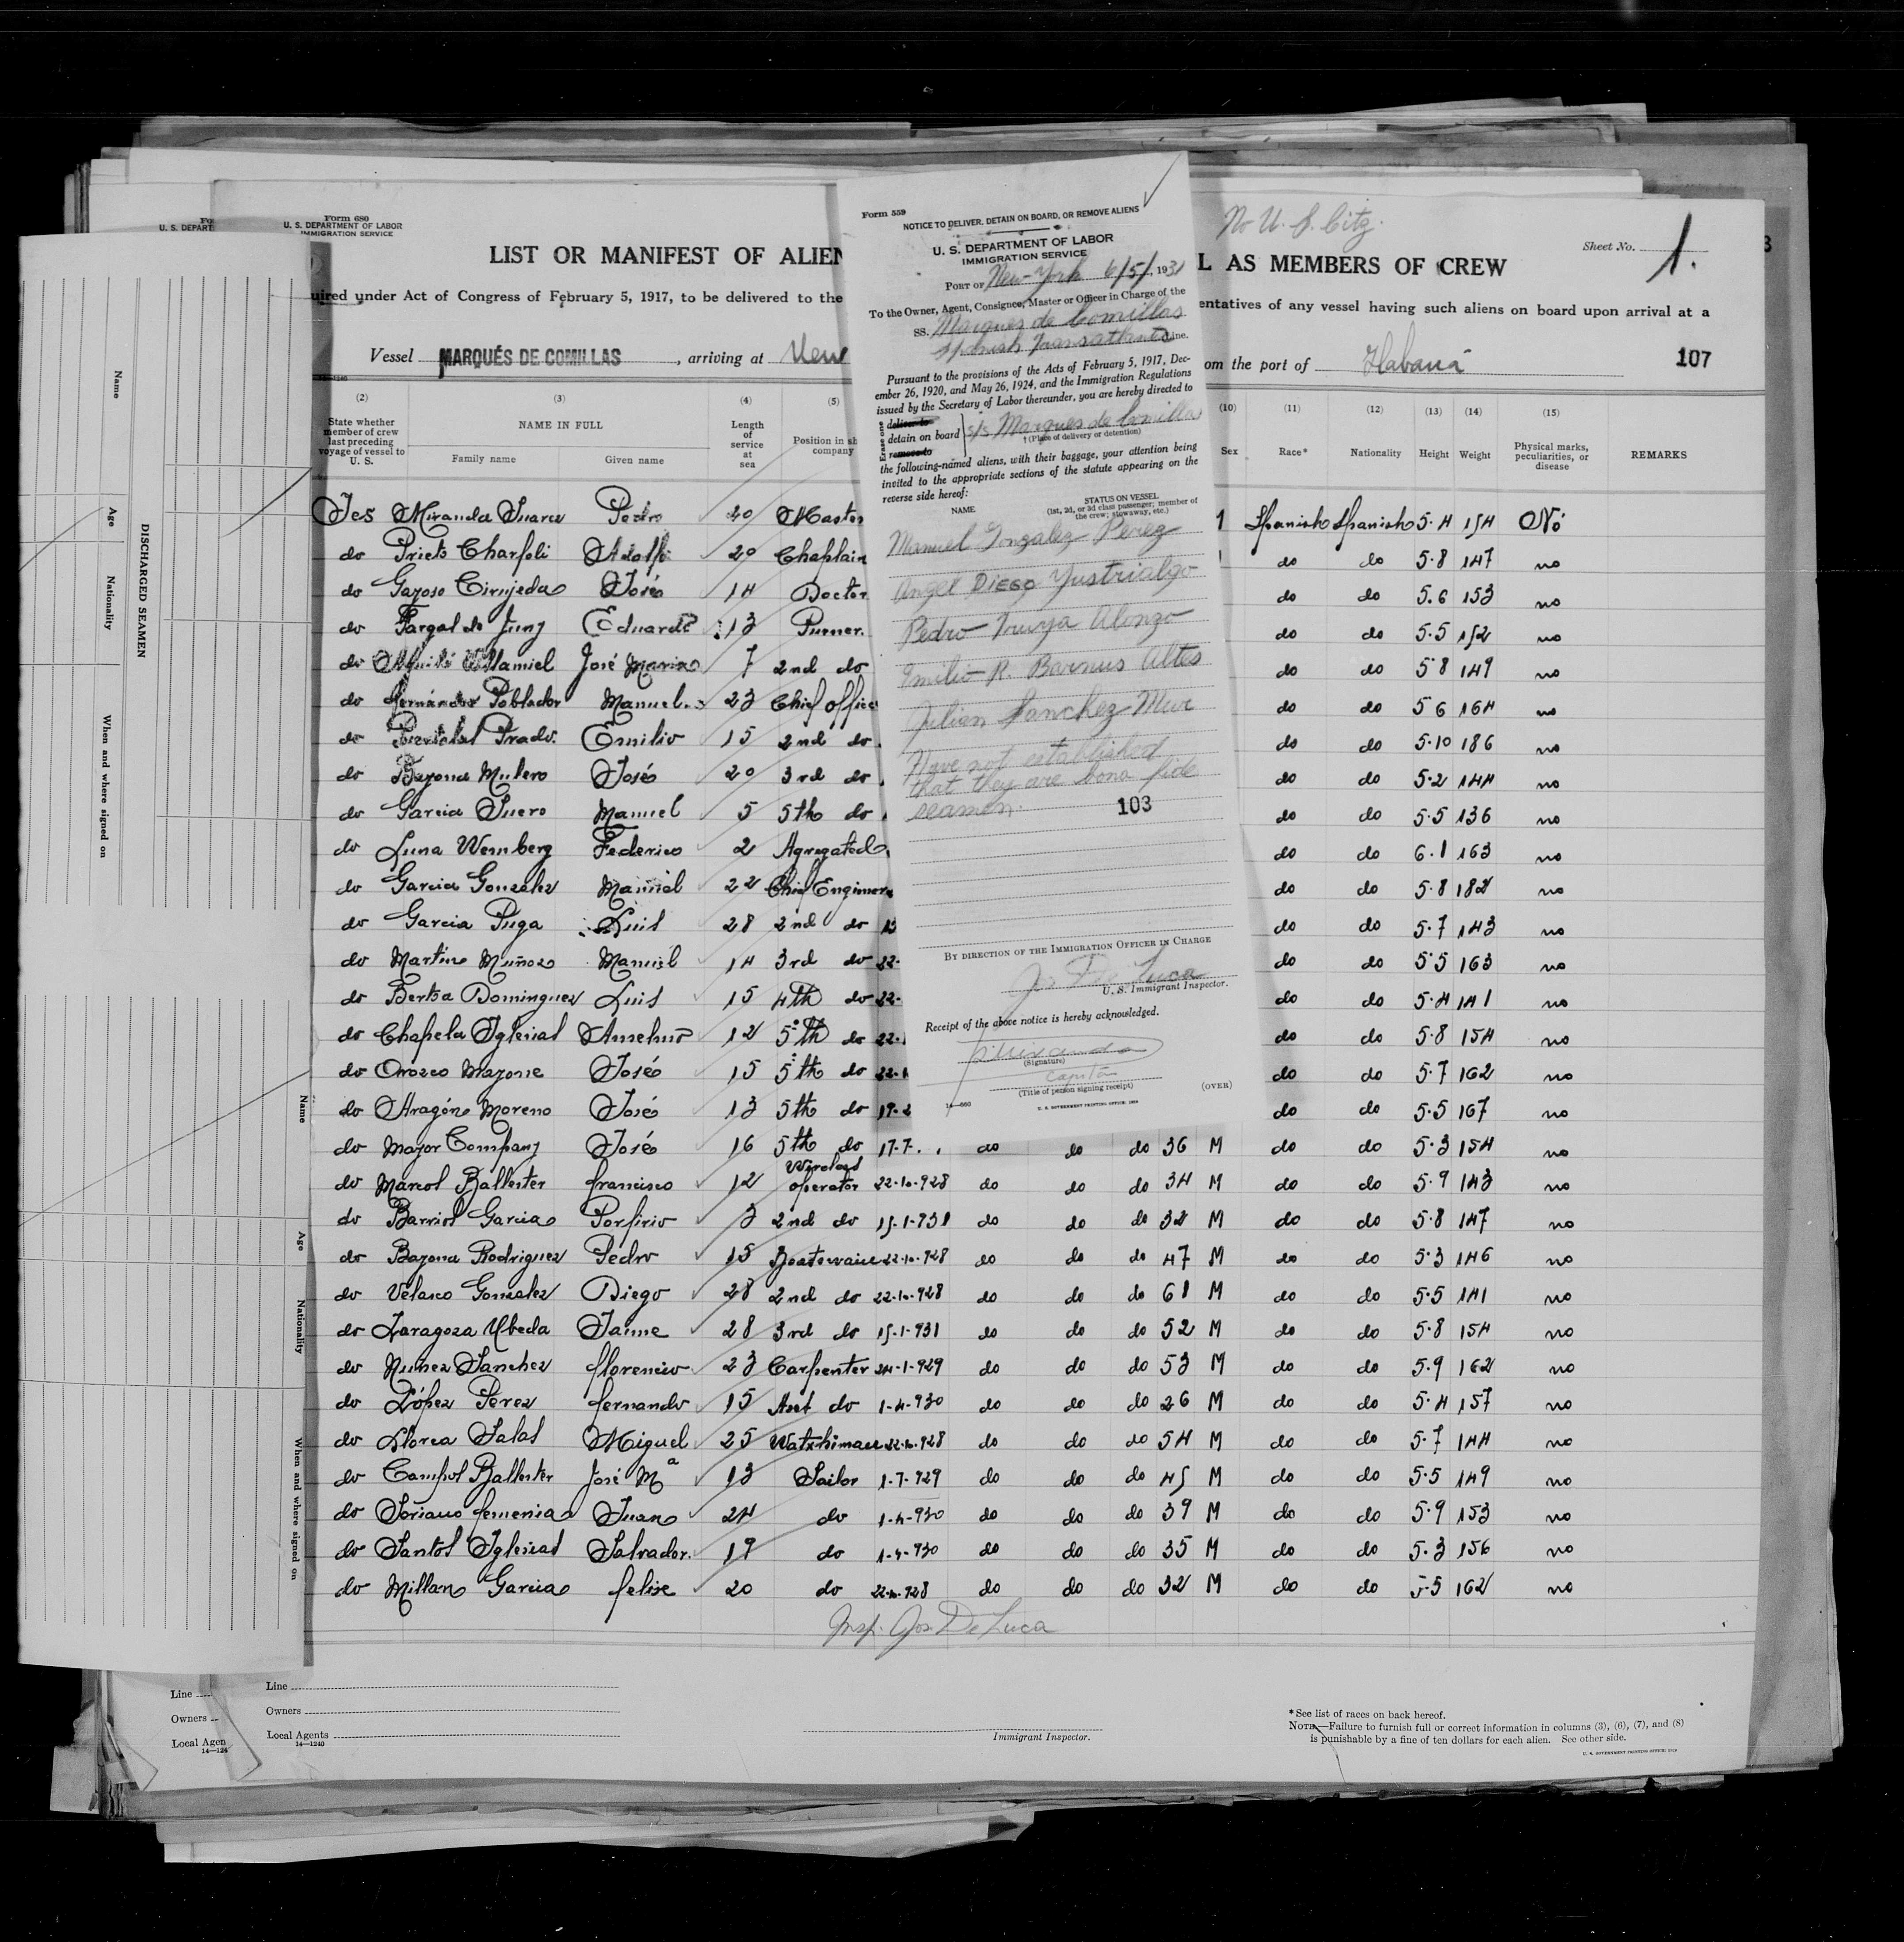 Form 680
U. S. DEPARTMENT OF LABOR
IMMIGRATION SERVICE
No U. S. Citz.
Sheet No. 1.
LIST OR MANIFEST OF ALIEN
L AS MEMBERS OF CREW
uired under Act of Congress of February 5, 1917, to be delivered to the
entatives of any vessel having such aliens on board upon arrival at a
Vessel MARQUÉS DE COMILLAS, arriving at New
om the port of Habana
107
Form 559
NOTICE TO DELIVER, DETAIN ON BOARD, OR REMOVE ALIENS
U. S. DEPARTMENT OF LABOR
IMMIGRATION SERVICE
PORT OF New-York 6/5/, 1931
To the Owner, Agent, Consignee, Master or Officer in Charge of the
SS. Marques de Comillas
Spanish Transatlantic Line.
Pursuant to the provisions of the Acts of February 5, 1917, Dec-
ember 26, 1920, and May 26, 1924, and the Immigration Regulations
issued by the Secretary of Labor thereunder, you are hereby directed to
Erase one
deliver to
detain on board
remove to
s/s Marques de Comillas
† (Place of delivery or detention)
the following-named aliens, with their baggage, your attention being
invited to the appropriate sections of the statute appearing on the
reverse side hereof:
NAME
STATUS ON VESSEL
(1st, 2d, or 3d class passenger; member of
the crew; stowaway, etc.)
Manuel Gonzalez Perez
Angel DIEGO Yustrialgo
Pedro Truya Alonzo
Emilio R. Barnus Altes
Julian Sanchez Mur
Have not established
that they are bona fide
seamen.
103
BY DIRECTION OF THE IMMIGRATION OFFICER IN CHARGE
Jos De Luca
U. S. Immigrant Inspector.
Receipt of the above notice is hereby acknowledged.
(Signature)
capitán
(Title of person signing receipt)
(OVER)
14—660
U. S. GOVERNMENT PRINTING OFFICE: 1929
(2) (3) (4) (5) (10) (11) (12) (13) (14) (15)
State whether member of crew last preceding voyage of vessel to U. S.
NAME IN FULL
Family name Given name
Length of service at sea
Position in sh company
Sex Race* Nationality Height Weight
Physical marks, peculiarities, or disease
REMARKS
Yes Miranda Suarez Pedro 20 Master 1 Spanish Spanish 5.4 154 No
do Prieto Adolfo 20 Chaplain do do 5.8 147 no
do Gayoso Cirujeda José 14 Doctor do do 5.6 153 no
do Eduardo 13 Purser. do do 5.5 152 no
do Villamiel José Maria 7 2nd do do do 5.8 149 no
do Fernández Poblador Manuel 23 Chief offic do do 5.6 164 no
do Prado. Emilio 15 2nd do do do 5.10 186 no
do Bayona Mulero José 20 3rd do do do 5.2 144 no
do Garcia Suero Manuel 5 5th do do do 5.5 136 no
do Luna Wemberg Federico 2 Agregated do do 6.1 163 no
do Garcia Gonzalez Manuel 22 Chief Engineer do do 5.8 182 no
do Garcia Puga Luis 28 2nd do do do 5.7 143 no
do Martin Muñoz Manuel 14 3rd do 22- do do 5.5 163 no
do Bertoa Dominguez Luis 15 4th do 22- do do 5.4 141 no
do Chapela Iglesias Anselmo 12 5th do 22. do do 5.8 154 no
do Orozco José 15 5th do 22.1 do do 5.7 162 no
do Aragón Moreno José 13 5th do 19.2 do do 5.5 167 no
do Mayor Company José 16 5th do 17-7. do do do 36 M do do 5.3 154 no
do Marcos Ballester francisco 12 Wireless operator 22-10-928 do do do 34 M do do 5.9 143 no
do Barrios Garcia Porfirio 3 2nd do 15-1-931 do do do 32 M do do 5.8 147 no
do Bayona Rodriguez Pedro 15 Boatswain 22-10-928 do do do 47 M do do 5.3 146 no
do Velasco Gonzalez Diego 28 2nd do 22-10-928 do do do 61 M do do 5.5 141 no
do Zaragoza Ubeda Jaime 28 3rd do 15-1-931 do do do 52 M do do 5.8 154 no
do Nuñez Sanchez florencio 23 Carpenter 24-1-929 do do do 53 M do do 5.9 162 no
do López Perez fernando 15 Asst do 1-4-930 do do do 26 M do do 5.4 157 no
do Llorca Salas Miguel 25 Watxhman 22-10-928 do do do 54 M do do 5.7 144 no
do Campos Ballester José Mª 13 Sailor 1-7-929 do do do 45 M do do 5.5 149 no
do Soriano femenia Juan 24 do 1-4-930 do do do 39 M do do 5.9 153 no
do Santos Iglesias Salvador. 19 do 1-4-930 do do do 35 M do do 5.3 156 no
do Millan Garcia felix 20 do 22-10-928 do do do 32 M do do 5.5 162 no
Insp. Jos. De Luca
Line
Owners
Local Agents
14—1240
Immigrant Inspector.
* See list of races on back hereof.
NOTE.—Failure to furnish full or correct information in columns (3), (6), (7), and (8)
is punishable by a fine of ten dollars for each alien. See other side.
U. S. GOVERNMENT PRINTING OFFICE: 1929
Line
Owners
Local Agen
14—124
DISCHARGED SEAMEN
Name
Age
Nationality
When and where signed on
Name
Age
Nationality
When and where signed on